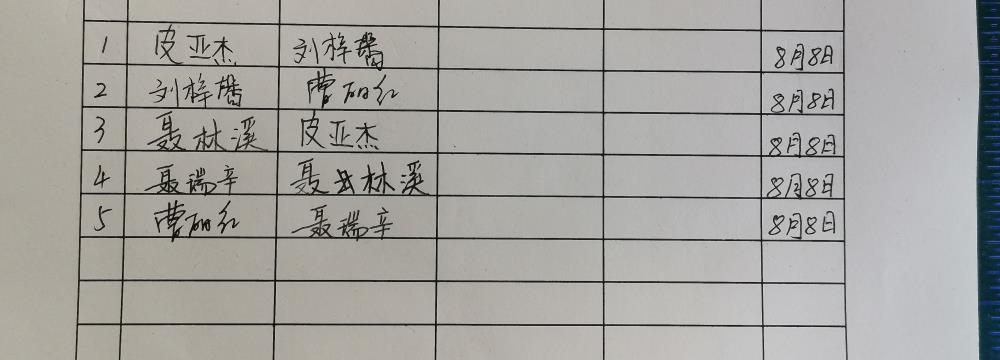 1 皮亚杰 刘梓馨 8月8日
2 刘梓馨 曹丽红 8月8日
3 聂林溪 皮亚杰 8月8日
4 聂瑞辛 聂林溪 8月8日
5 曹丽红 聂瑞辛 8月8日